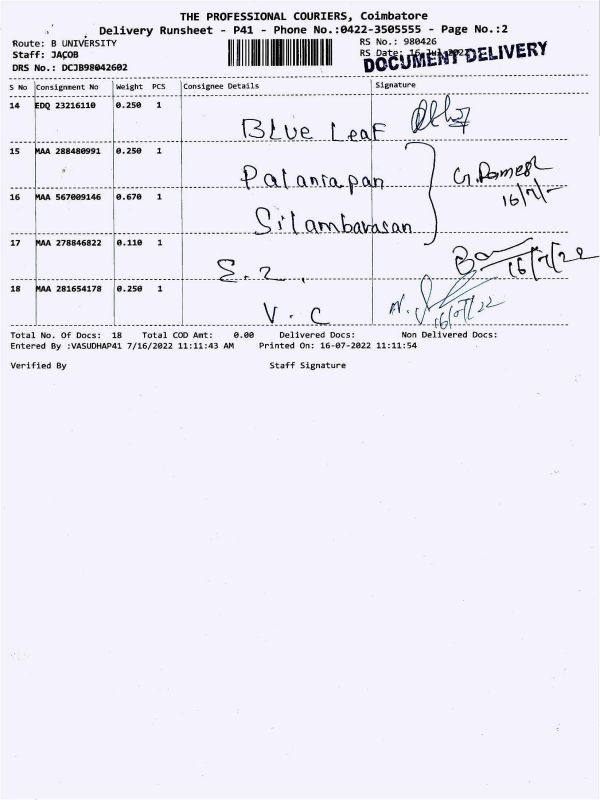 THE PROFESSIONAL COURIERS, Coimbatore
Delivery Runsheet - P41 - Phone No.:0422-3505555 - Page No.:2
Route: B UNIVERSITY
RS No.: 980426
Staff: JACOB
RS Date: 16 Jul 2022
DOCUMENT DELIVERY
DRS No.: DCJB98042602
S No Consignment No Weight PCS Consignee Details Signature
14 EDQ 23216110 0.250 1
Blue Leaf
15 MAA 288480991 0.250 1
Palaniapan G. Ramesh
16/7/-
16 MAA 567009146 0.670 1
Silambarasan
17 MAA 278846822 0.110 1
16/7/22
S. 2.
18 MAA 281654178 0.250 1
V. C
16/07/22
Total No. Of Docs: 18 Total COD Amt: 0.00 Delivered Docs: Non Delivered Docs:
Entered By :VASUDHAP41 7/16/2022 11:11:43 AM Printed On: 16-07-2022 11:11:54
Verified By Staff Signature